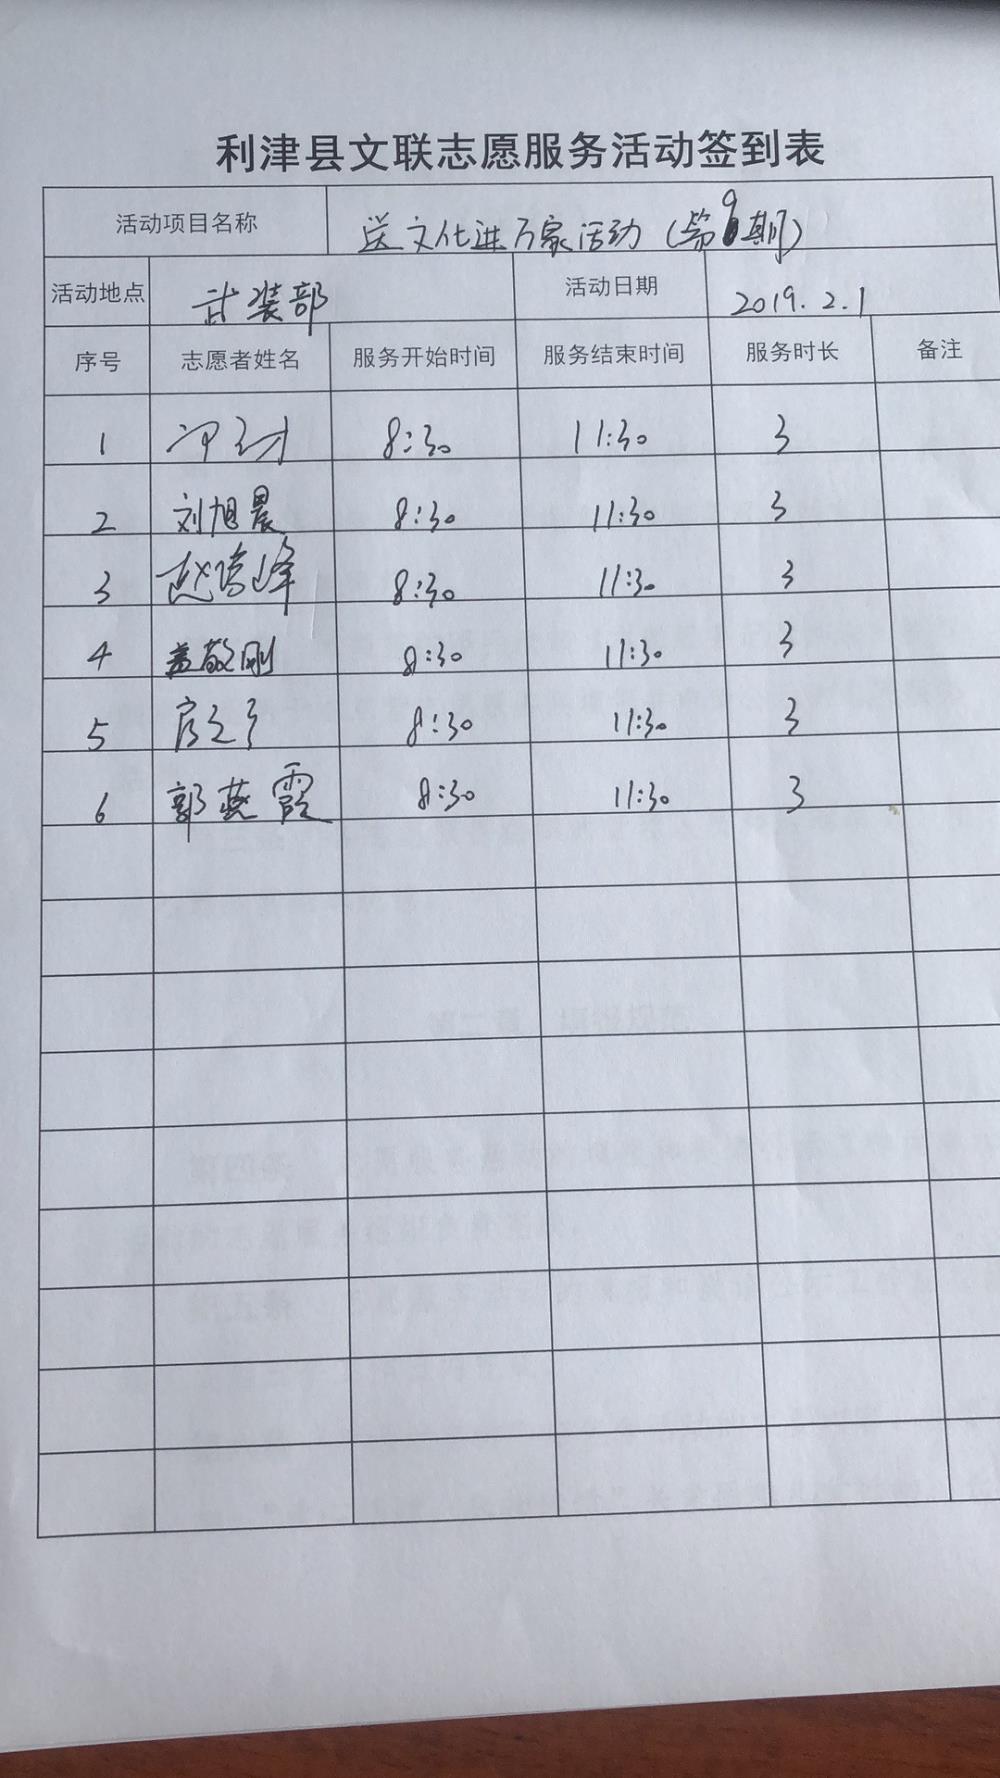 利津县文联志愿服务活动签到表
活动项目名称 送文化进万家活动（第9期）
活动地点 武装部 活动日期 2019.2.1
序号 志愿者姓名 服务开始时间 服务结束时间 服务时长 备注
1 8:30 11:30 3
2 刘旭晨 8:30 11:30 3
3 赵 峰 8:30 11:30 3
4 盖敬刚 8:30 11:30 3
5 8:30 11:30 3
6 郭燕霞 8:30 11:30 3